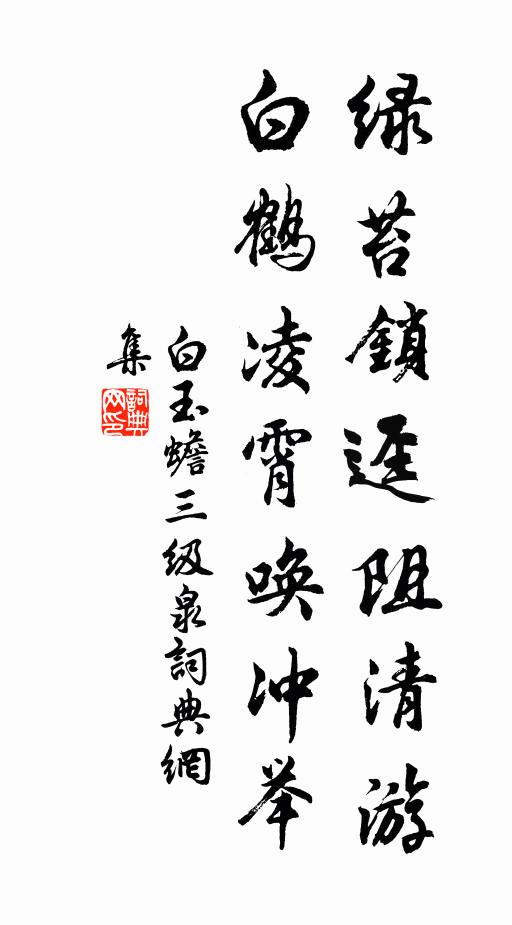 绿苔鎖迳阻清游
白鹤凌霄唤冲举
白玉蟾三级泉詞典網
集
詞典
网印